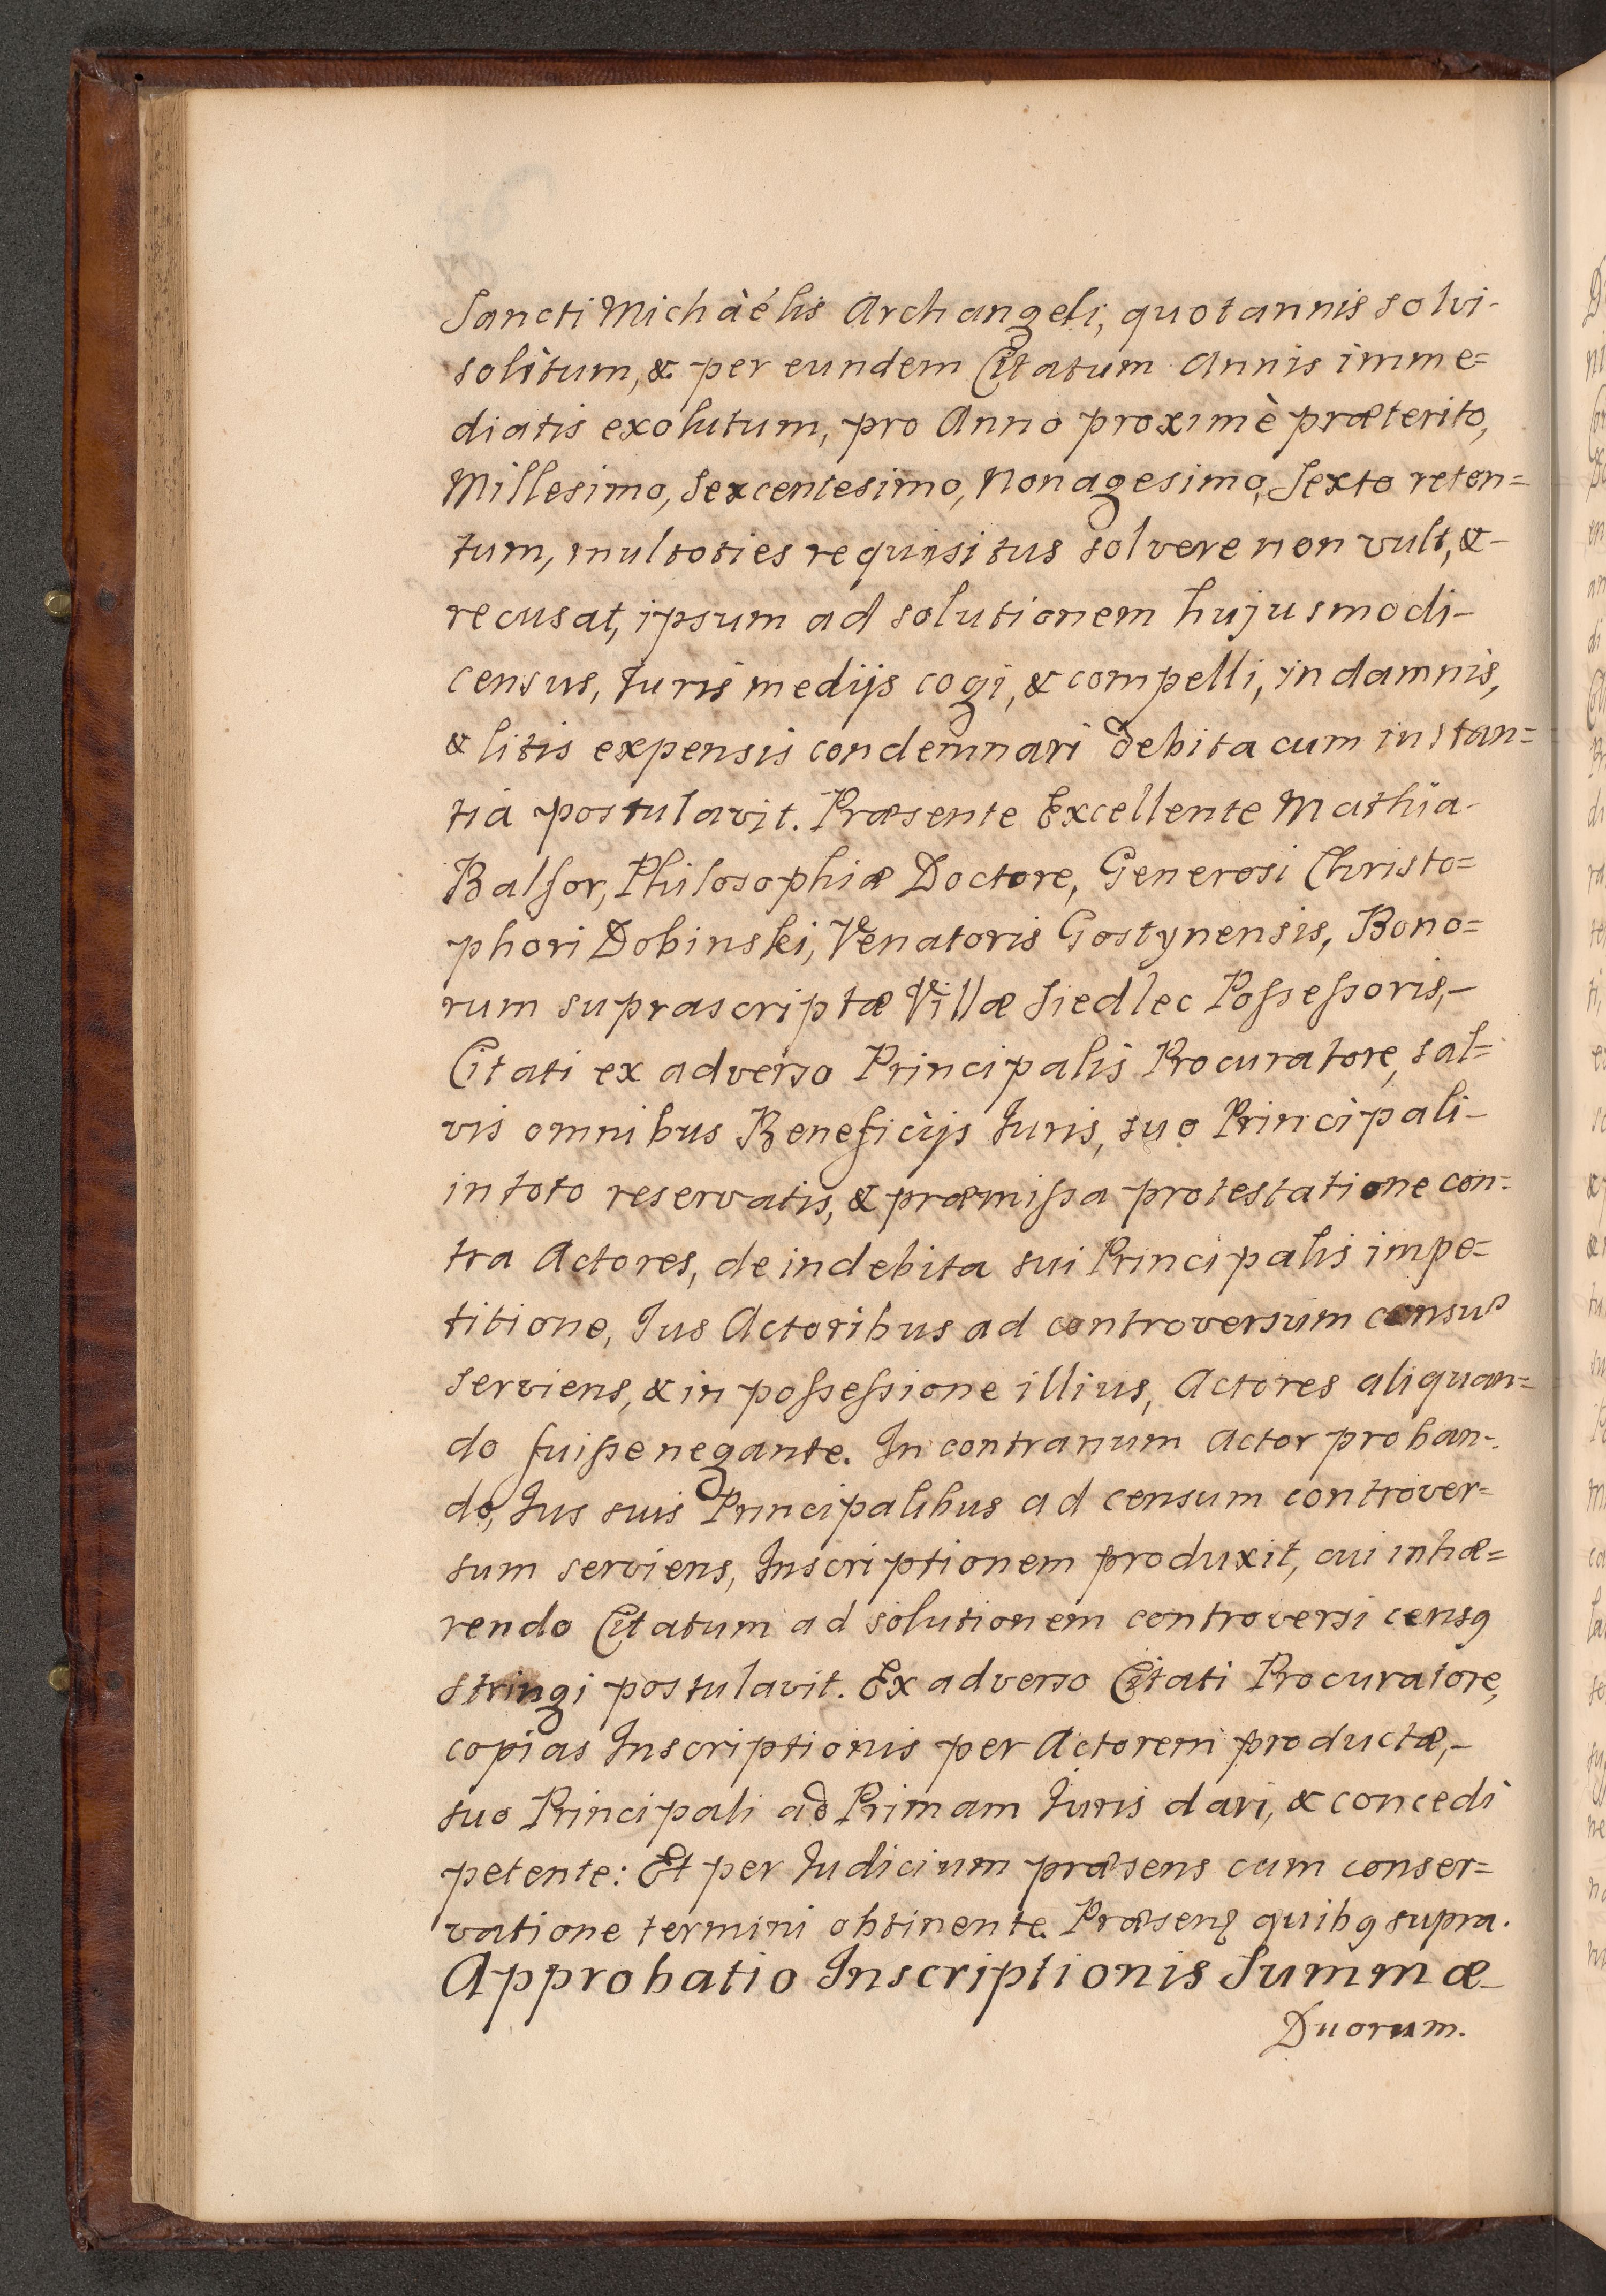 Sancti Michàélis Archangeli, quotannis solvi-
solitum, & per eundem Citatum Annis imme=
diatis exolutum, pro Anno proximè præterito,
Millesimo, Sexcentesimo, Nonagesimo, Sexto reten=
tum, multoties requisitus solvere non vult, &-
recusat, ipsum ad solutionem hujusmodi-
census, Juris medijs cogi, & compelli, in damnis,
& litis expensis condemnari debita cum instan=
tiá postulavit. Præsente Excellente Mathia-
Balsor, Philosophiæ Doctore, Generosi Christo=
phori Dobinski, Venatoris Gostynensis, Bono=
rum suprascriptæ Villæ Siedlec Possessoris,-
Citati ex adverso Principalis Procuratore, sal=
vis omnibus Beneficijs Juris, suo Principali-
in toto reservatis, & præmissa protestatione con=
tra Actores, de indebita sui Principalis impe=
titione, Jus Actoribus ad controversum census
serviens, & in possessione illius, Actores aliquan=
do fuisse negante. In contrarium Actor proban-
do, Jus suis Principalibus ad censum controver=
sum serviens, Inscriptionem produxit, cui inhæ=
rendo Citatum ad solutionem controversi censꝯ
stringi postulavit. Ex adverso Citati Procuratore,
copias Inscriptionis per Actorem productæ,-
suo Principali ad Primam Juris dari, & concedi
petente: Et per Judicium præsens cum conser=
vatione termini obtinente. Præsenꝭ quibꝯ supra.
Approbatio Inscriptionis Summæ-
Duorum.